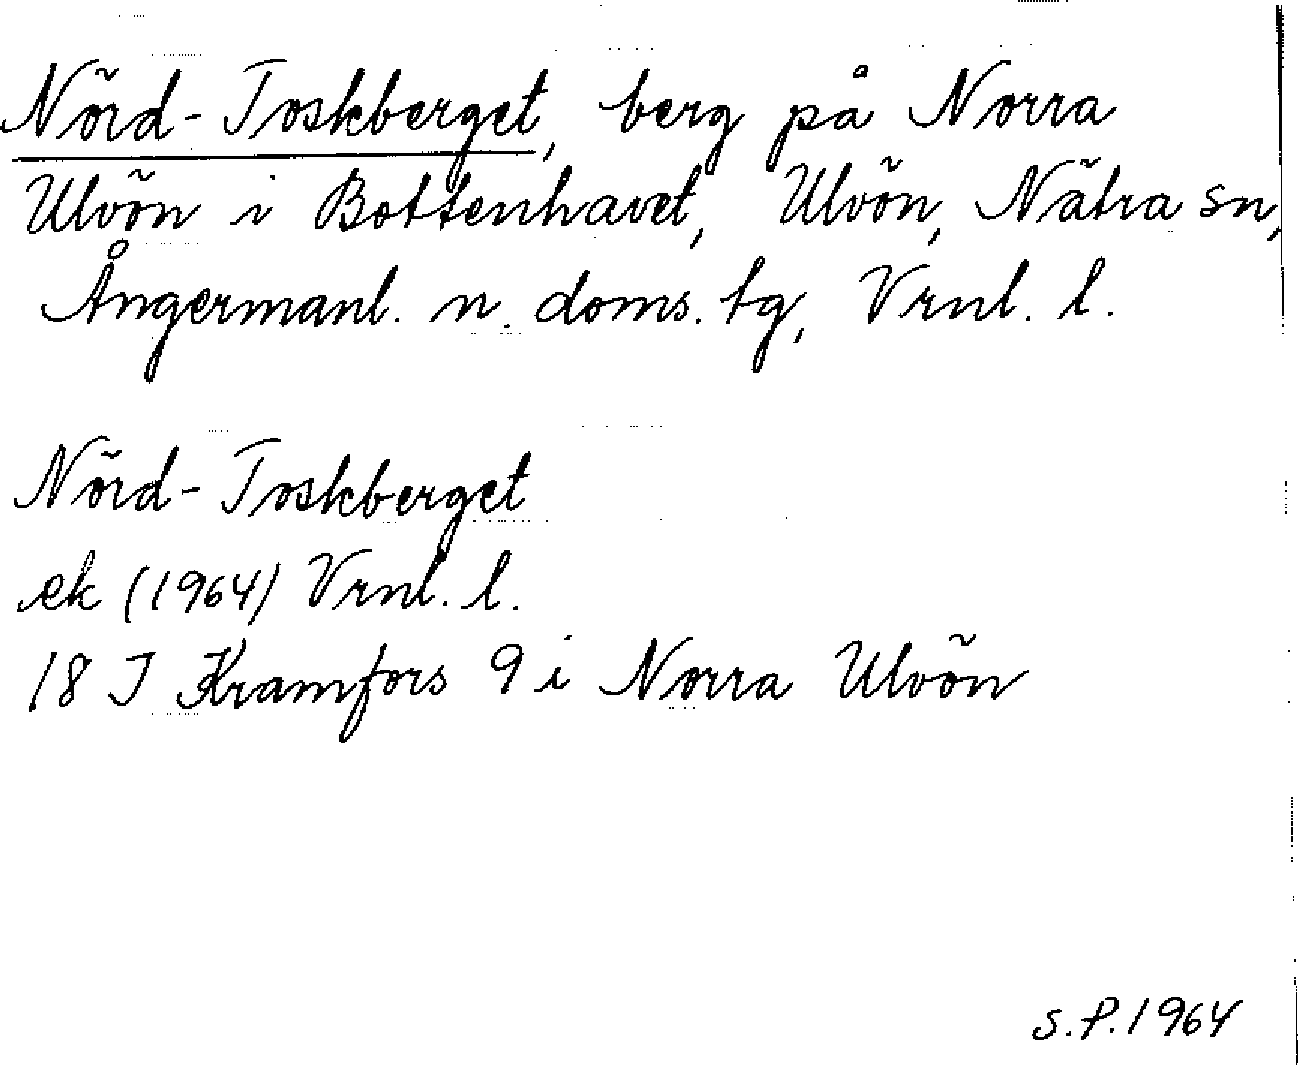 Nörd-Toskberget, berg på Norra
Ulvön i Bottenhavet, Ulvön, Nätra sn,
Ångermanl. n. doms. tg, Vrnl. l.
Nörd-Toskberget
ek (1964) Vrnl. l.
18 J Kramfors 9 i Norra Ulvön
S.P. 1964